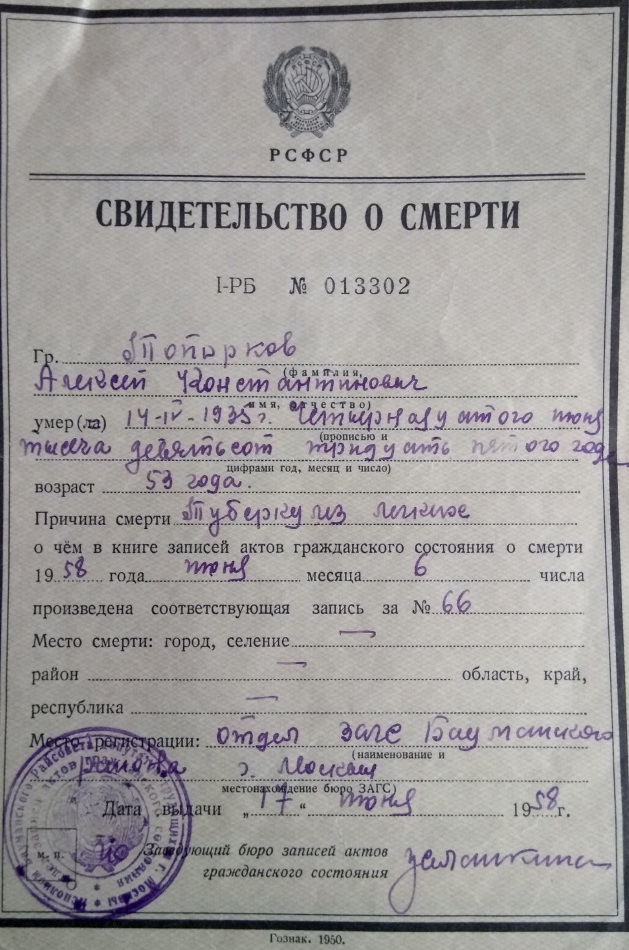 РСФСР
СВИДЕТЕЛЬСТВО О СМЕРТИ
I-РБ № 013302
Гр. Топорков
(фамилия,
Алексей Константинович
имя, отчество)
умер(ла) 14-IV-1935 г. Четырнадцатого июня
(прописью и
тысяча девятьсот тридцать пятого года
цифрами год, месяц и число)
возраст 53 года.
Причина смерти Туберкулез легких
о чём в книге записей актов гражданского состояния о смерти
1958 года июня месяца 6 числа
произведена соответствующая запись за № 66
Место смерти: город, селение —
район — область, край,
республика —
Место регистрации: отдел ЗАГС Бауманского
(наименование и
района г. Москвы
местонахождение бюро ЗАГС)
Дата выдачи „17“ июня 1958 г.
м. п.
Заведующий бюро записей актов
гражданского состояния
Гознак. 1950.